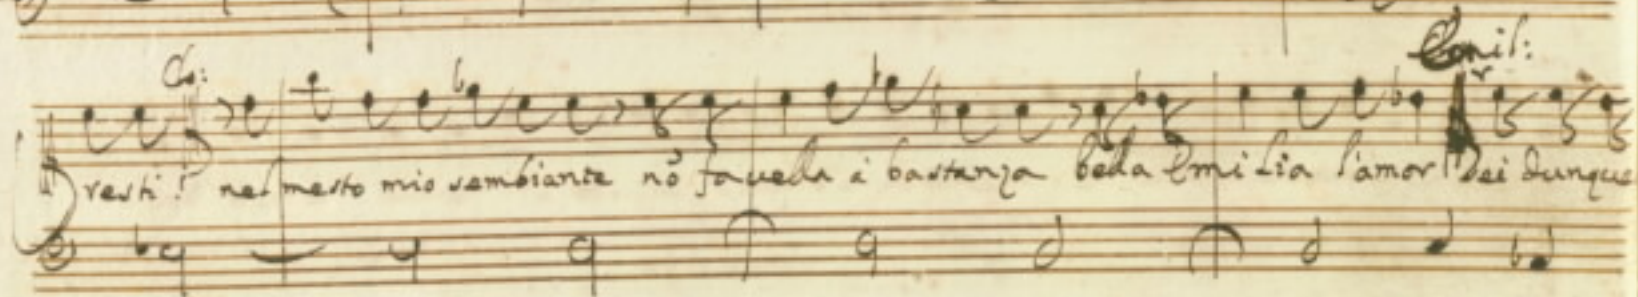 Co:
Emil:
resti! nel mesto mio sembiante nõ favella à bastanza bella Emilia l'amor! Dei dunque